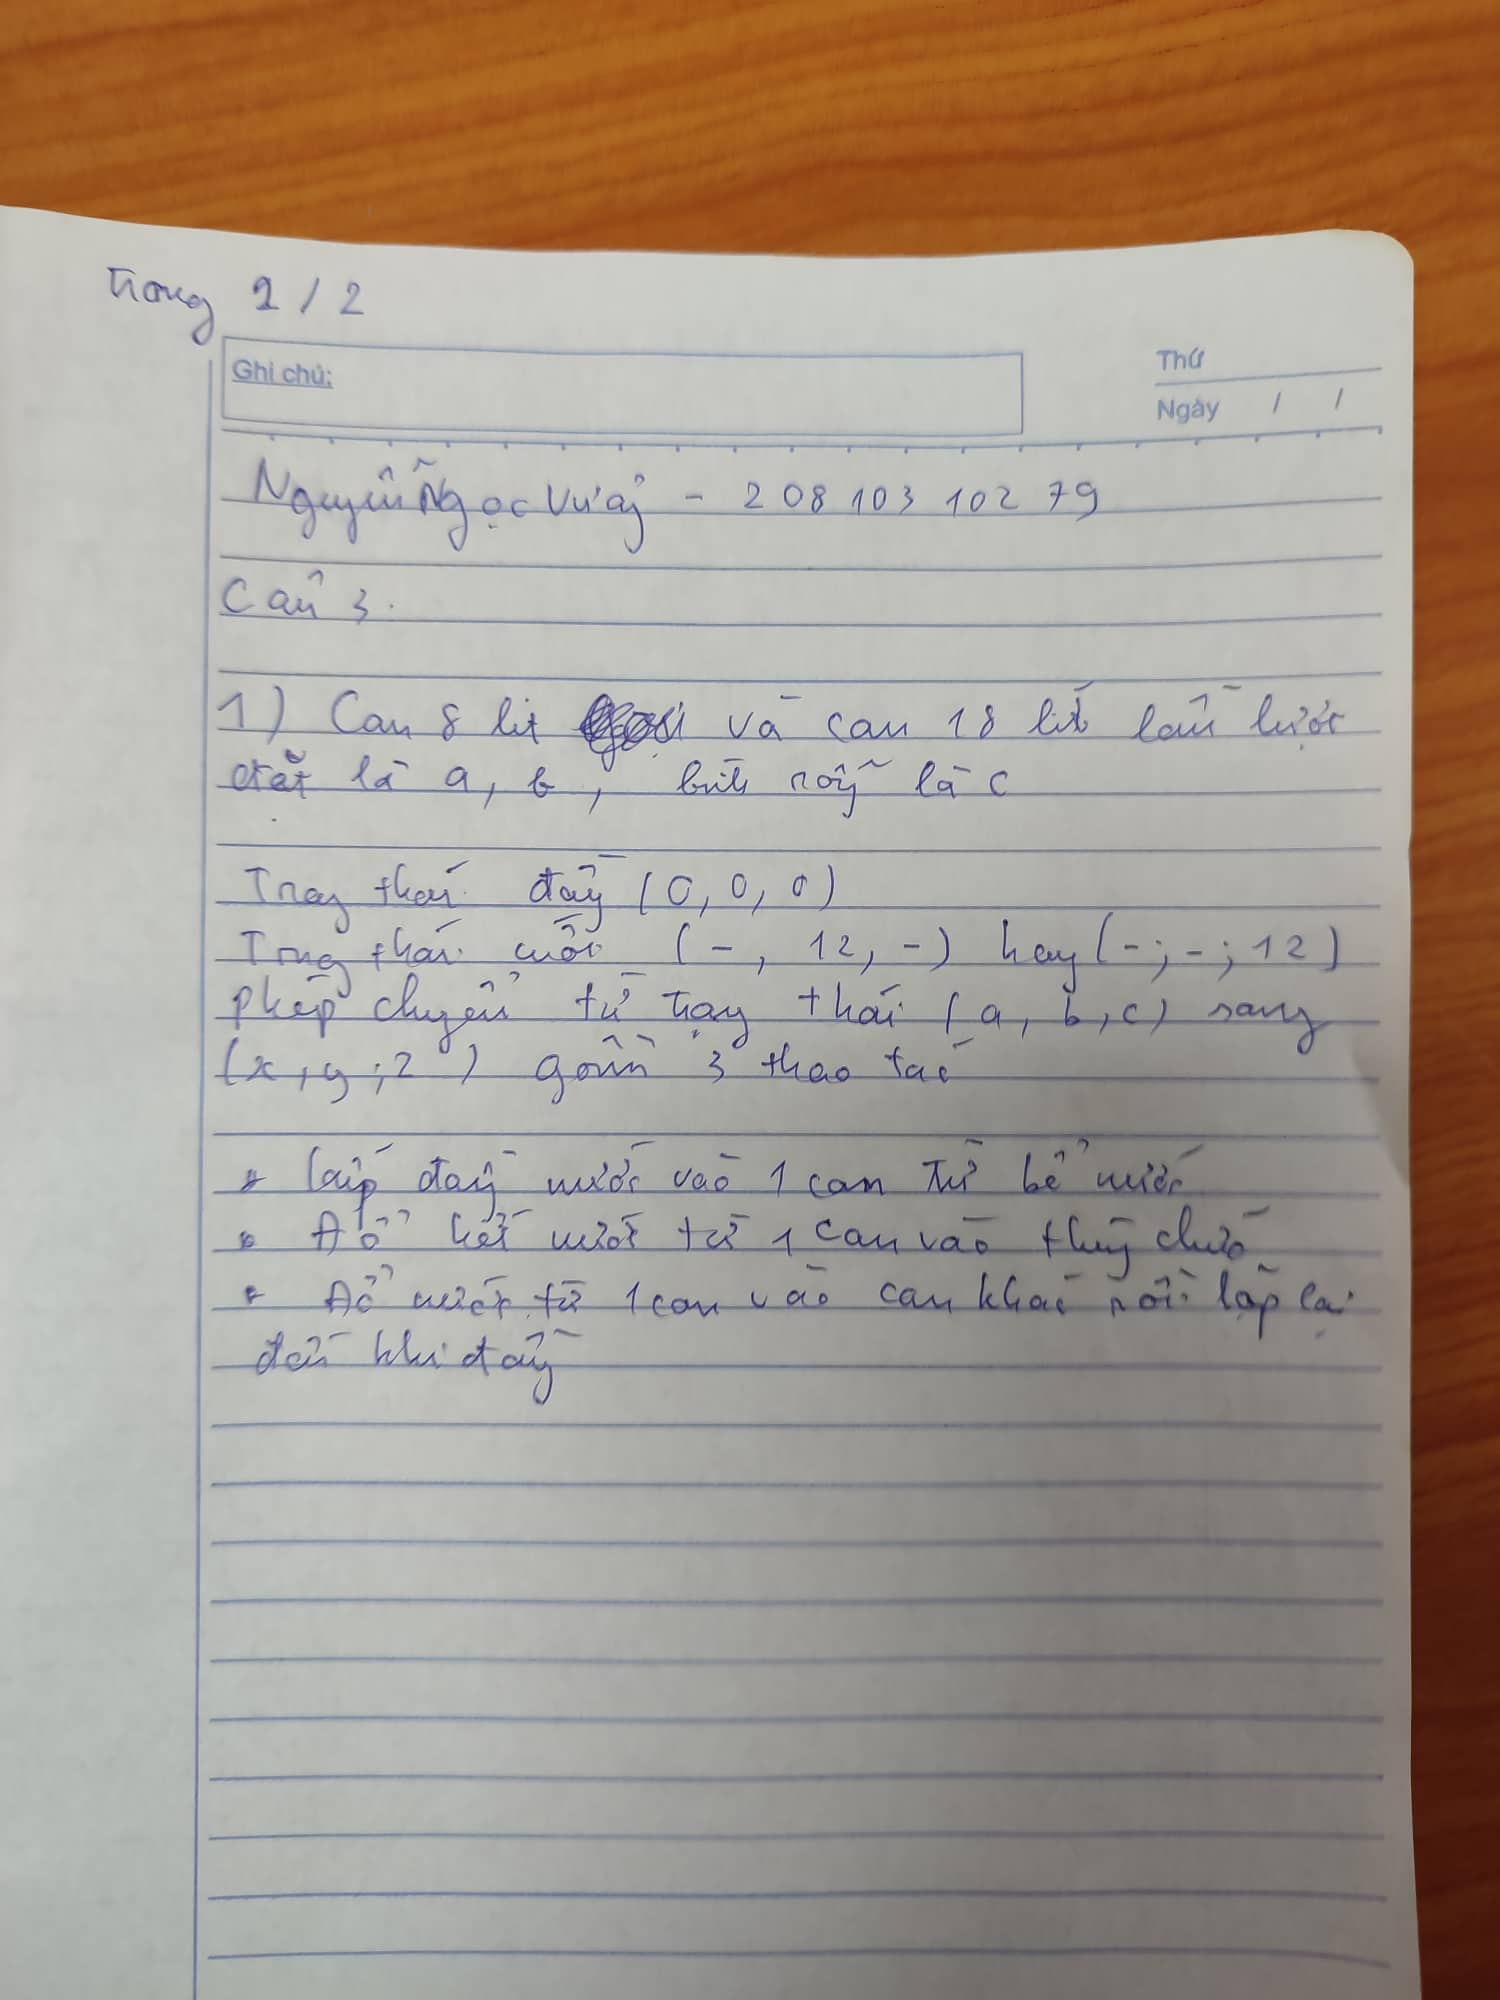 Trang 2 / 2
Ghi chú:
Thứ
Ngày / /
Nguyễn Ngọc Vương - 208 103 102 79
Câu 3.
1) Can 8 lit và can 18 lít lần lượt
đặt là a, b, bình rỗng là c
Trạng thái đầy (0, 0, 0)
Trạng thái cuối (-, 12, -) hay (-; -; 12)
Phép chuyển từ trạng thái (a, b, c) sang
(x, y ; z) gồm 3 thao tác
* đầy nước vào 1 can từ bể nước
* Đổ hết nước từ 1 can vào thùng chứa
* Đổ nước từ 1 can vào can khác rồi lặp lại
đến khi đầy